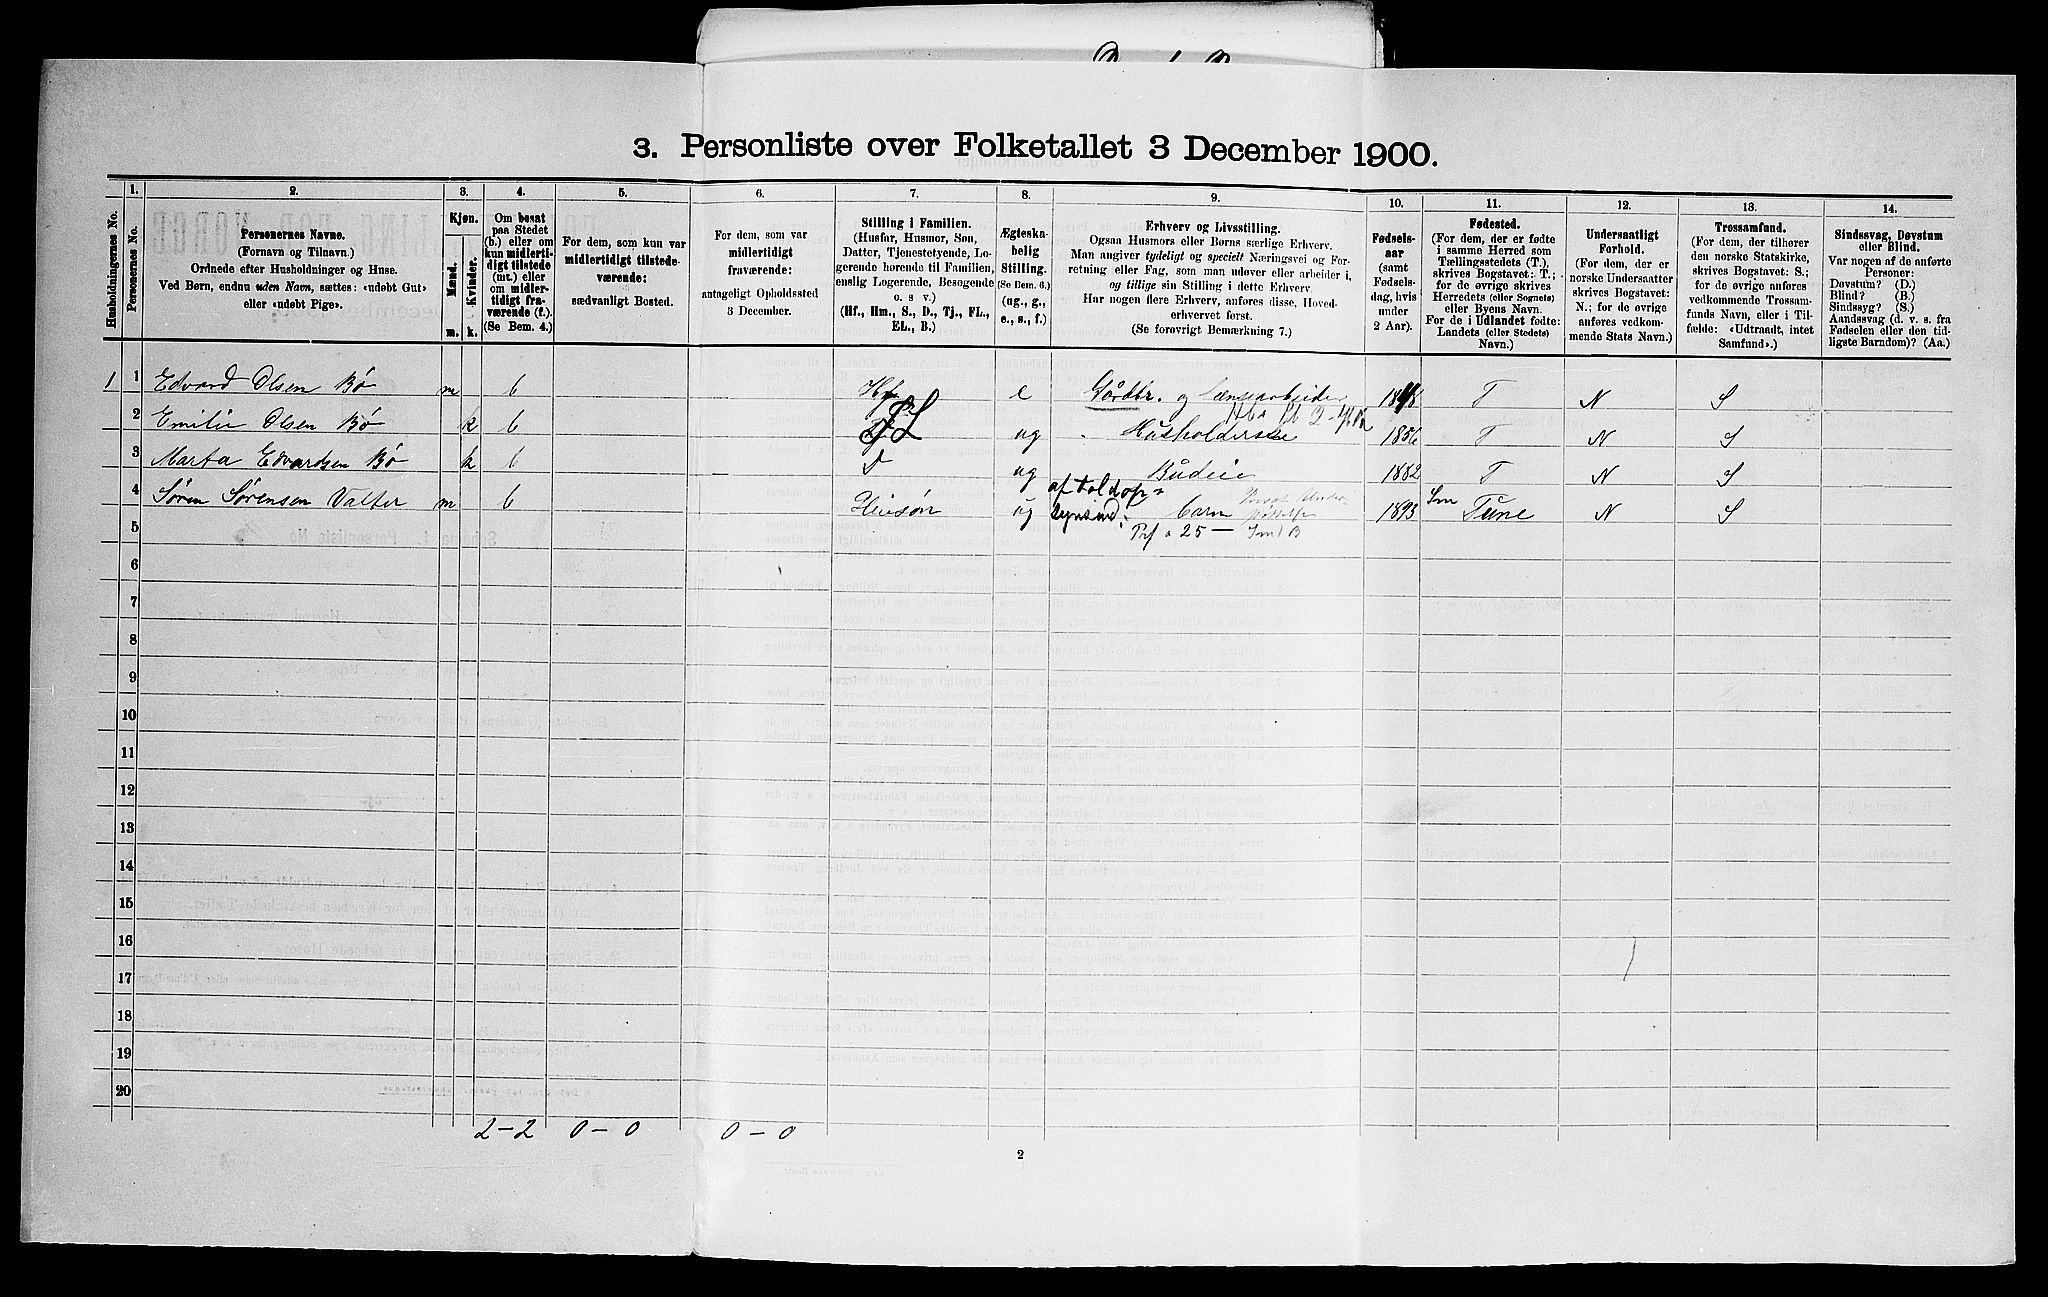 3. Personliste over Folketallet 3 December 1900.
Husholdningernes No.
1.
Personernes No.
2.
Personernes Navne.
(Fornavn og Tilnavn.)
Ordnede efter Husholdninger og Huse.
Ved Børn, endnu uden Navn, sættes: «udøbt Gut»
eller «udøbt Pige».
3.
Kjøn.
Mænd.
Kvinder.
m.
k.
4.
Om bosat
paa Stedet
(b.) eller om
kun midlerti-
digt tilstede
(mt.) eller
om midler-
tidigt fra-
værende (f.).
(Se Bem. 4.)
5.
For dem, som kun var
midlertidigt tilstede-
værende:
sædvanligt Bosted.
6.
For dem, som var
midlertidigt
fraværende:
antageligt Opholdssted
3 December.
7.
Stilling i Familien.
(Husfar, Husmor, Søn,
Datter, Tjenestetyende, Lo-
gerende hørende til Familien,
enslig Logerende, Besøgende
o. s. v.)
(Hf., Hm., S., D., Tj., FL.,
EL., B.)
8.
Ægteska-
belig
Stilling.
(Se Bem. 6.)
(ug., g.,
e., s., f.)
9.
Erhverv og Livsstilling.
Ogsaa Husmors eller Børns særlige Erhverv.
Man angiver tydeligt og specielt Næringsvei og For-
retning eller Fag, som man udøver eller arbeider i,
og tillige sin Stilling i dette Erhverv.
Har nogen flere Erhverv, anføres disse, Hoved-
erhvervet først.
(Se forøvrigt Bemærkning 7.)
10.
Fødsels-
aar
(samt
Fødsels-
dag, hvis
under
2 Aar).
11.
Fødested.
(For dem, der er fødte
i samme Herred som
Tællingsstedets (T.),
skrives Bogstavet: T.;
for de øvrige skrives
Herredets (eller Sognets)
eller Byens Navn.
For de i Udlandet fødte:
Landets (eller Stedets)
Navn.)
12.
Undersaatligt
Forhold.
(For dem, der er
norske Undersaatter
skrives Bogstavet:
N.; for de øvrige
anføres vedkom-
mende Stats Navn.)
13.
Trossamfund.
(For dem, der tilhører
den norske Statskirke,
skrives Bogstavet: S.;
for de øvrige anføres
vedkommende Trossam-
funds Navn, eller i Til-
fælde: «Udtraadt, intet
Samfund».)
14.
Sindssvag, Døvstum
eller Blind.
Var nogen af de anførte
Personer:
Døvstum? (D.)
Blind? (B.)
Sindssyg? (S.)
Aandssvag (d. v. s. fra
Fødselen eller den tid-
ligste Barndom)? (Aa.)
1 1 Edvard Olsen Bø m b Hf e Gårdbr. og Lænsearbeider 18 8 T N S
2 Emilie Olsen Bø k b SL ug Husholderske 1856 T N S
3 Marta Edvardsen Bø k b D ug Budeie 1882 T N S
4 Søren Sørensen Valter m b ug Barn 1893 Sm Tune N S
5
6
7
8
9
10
11
12
13
14
15
16
17
18
19
20
2-2 0-0 0-0
2